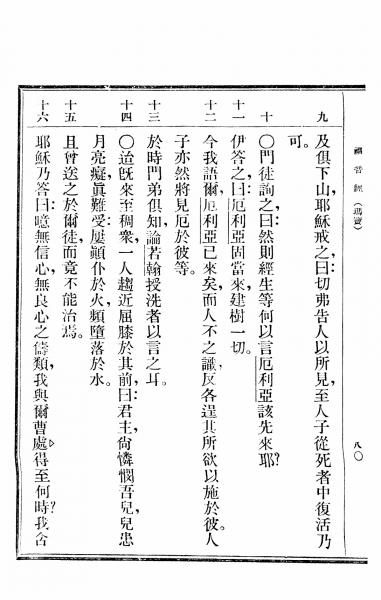 福音經（瑪竇）　八〇
九　及俱下山，耶穌戒之曰：切弗告人以所見，至人子從死者中復活乃
可。
十　〇門徒詢之曰：然則經生等何以言厄利亞該先來耶？
十一　伊答之曰：厄利亞固當來，建樹一切。
十二　今我語爾，厄利亞已來矣，而人不之識，反各逞其所欲以施於彼。人
子亦然將見厄於彼等。
十三　於時門弟俱知，論若翰授洗者以言之耳。
十四　〇迨旣來至稠衆，一人趨近屈膝於其前，曰：君主，尙憐憫吾兒，兒患
月亮癡，眞難受，屢顚仆於火，頻墮落於水。
十五　且曾送之於爾徒，而竟不能治焉。
十六　耶穌乃答曰：噫無信心，無良心之儔類，我與爾曹處得至何時？我含